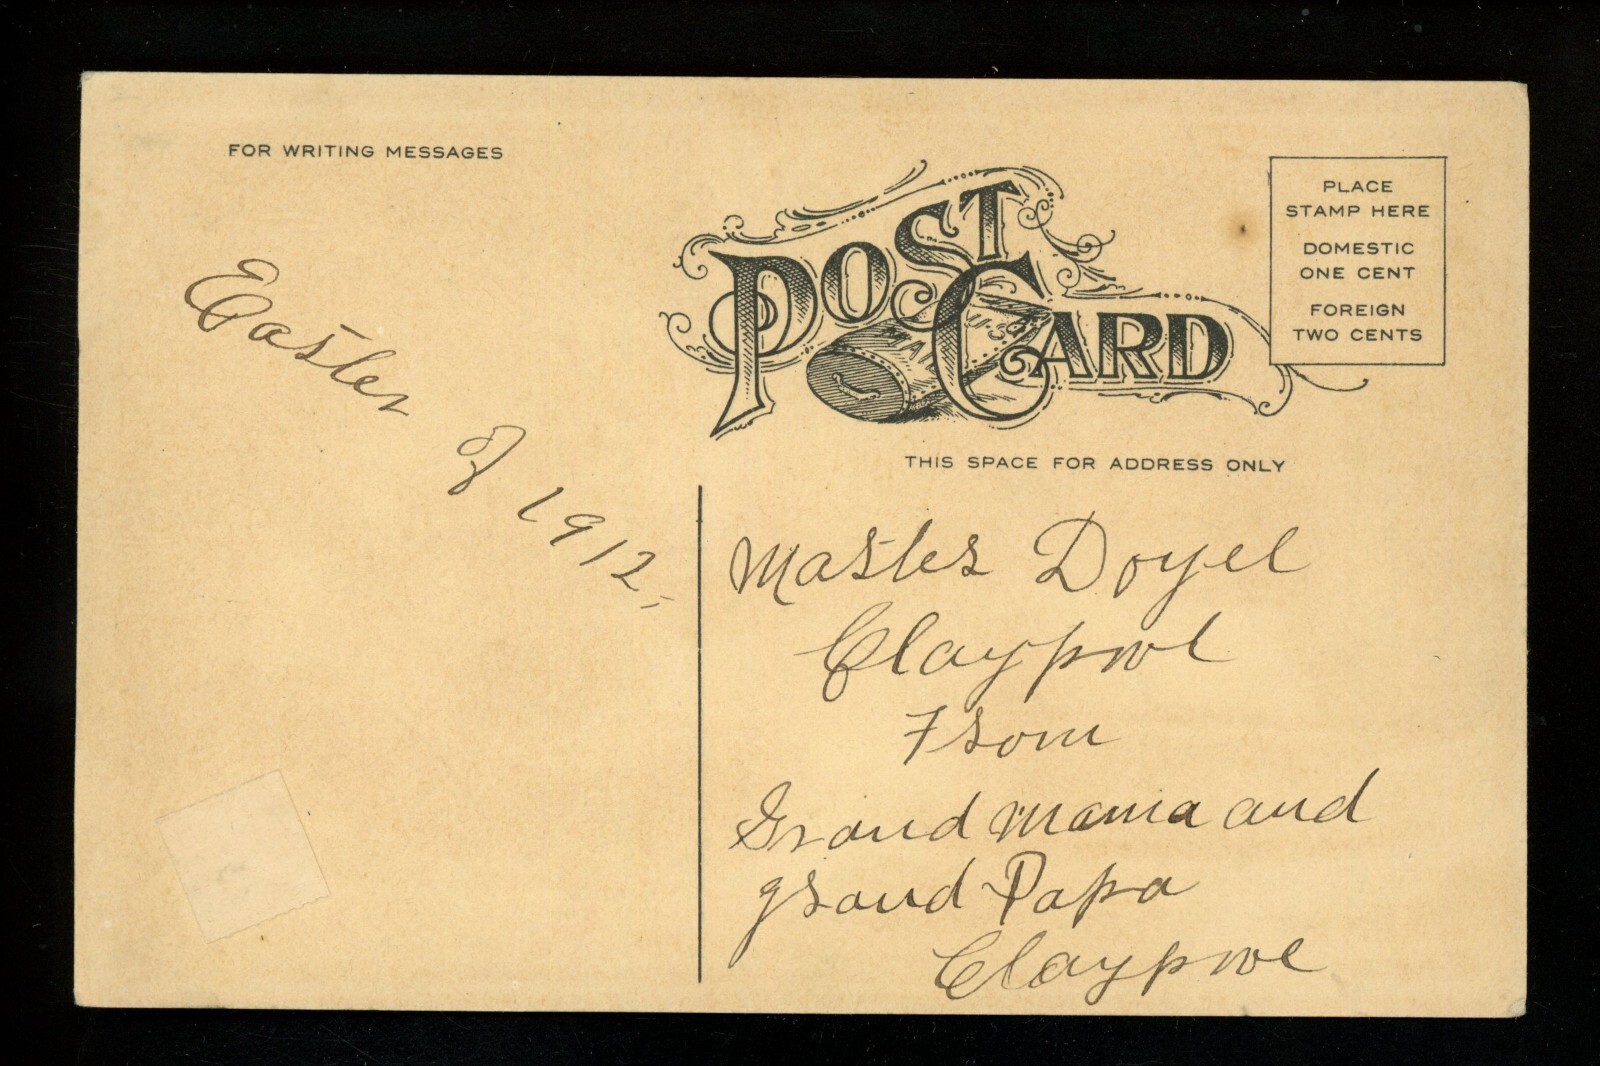 FOR WRITING MESSAGES
POST CARD
U.S.
MAIL
PLACE
STAMP HERE
DOMESTIC
ONE CENT
FOREIGN
TWO CENTS
THIS SPACE FOR ADDRESS ONLY
Easter of 1912
Master Doyel
Claypool
From
Grand Mama and
grand Papa
Claypool